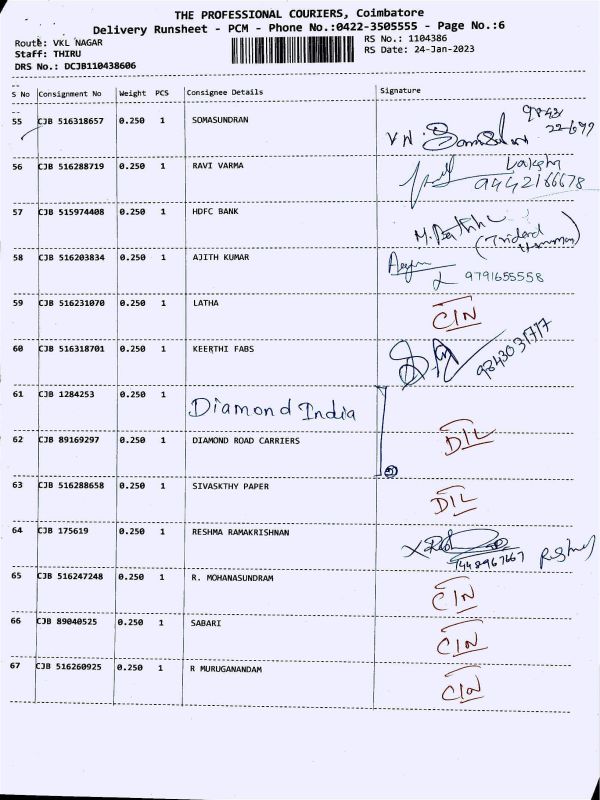 THE PROFESSIONAL COURIERS, Coimbatore
Delivery Runsheet - PCM - Phone No.:0422-3505555 - Page No.:6
Route: VKL NAGAR
RS No.: 1104386
Staff: THIRU
RS Date: 24-Jan-2023
DRS No.: DCJB110438606
S No Consignment No Weight PCS Consignee Details Signature
55 CJB 516318657 0.250 1 SOMASUNDRAN
56 CJB 516288719 0.250 1 RAVI VARMA 9442166678
57 CJB 515974408 0.250 1 HDFC BANK
58 CJB 516203834 0.250 1 AJITH KUMAR
9791655558
59 CJB 516231070 0.250 1 LATHA CIN
60 CJB 516318701 0.250 1 KEERTHI FABS
61 CJB 1284253 0.250 1 Diamond India
62 CJB 89169297 0.250 1 DIAMOND ROAD CARRIERS DIL
63 CJB 516288658 0.250 1 SIVASKTHY PAPER DIL
64 CJB 175619 0.250 1 RESHMA RAMAKRISHNAN
65 CJB 516247248 0.250 1 R. MOHANASUNDRAM CIN
66 CJB 89040525 0.250 1 SABARI CIN
67 CJB 516260925 0.250 1 R MURUGANANDAM CIN